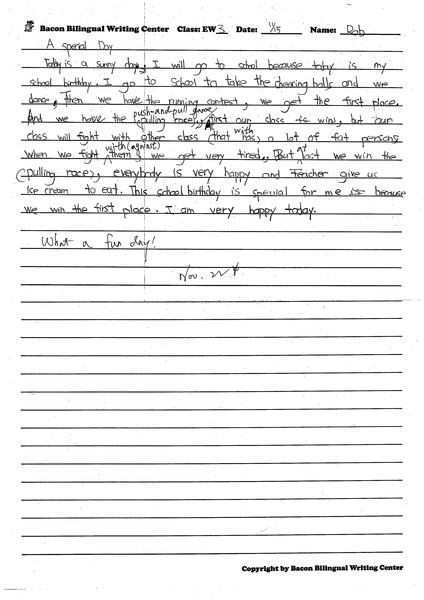 Bacon Bilingual Writing Center Class: EW 3 Date: 11/15 Name: Bob
A special Day
Today is a sunny day, I will go to school because today is my
school birthday. I go to school to take the cheering balls and we
dance, Then we have the running contest, we get the first place.
push-and-pull game
And we have the (pulling race), first our class is win, but our
with
class will fight with other class (that has) a lot of fat persons
with (against) at
When we fight them, we get very tired, But last we win the
(pulling race), everybody is very happy and Teacher give us
Ice cream to eat. This school birthday is special for me is because
we win the first place. I am very happy today.
What a fun day!
Nov. 22
Copyright by Bacon Bilingual Writing Center